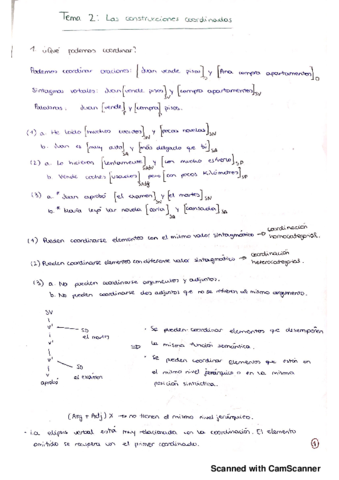 Tema 2: Las construcciones coordinadas
1. ¿Qué podemos coordinar?
Podemos coordinar oraciones: [Juan vende pisos]O y [Ana compra apartamentos]O
Sintagmas verbales: Juan [vende pisos]SV y [compra apartamentos]SV
Palabras: Juan [vende] y [compra] pisos.
(1) a. He leído [muchos cuentos]SN y [pocas novelas]SN
b. Juan es [muy alto]SA y [más delgado que tú]SA
(2) a. Lo hicieron [lentamente]SAdv y [con mucho esfuerzo]SP
b. Vende coches [usados]SAdj pero [con pocos kilómetros]SP
(3) a. * Juan aprobó [el examen] y [el martes]SN
b. * María leyó la novela [corta]SA y [cansada]SA
(1) Pueden coordinarse elementos con el mismo valor sintagmático → coordinación homocategorial.
(2) Pueden coordinarse elementos con diferente valor sintagmático → coordinación heterocategorial.
(3) a. No pueden coordinarse argumentos y adjuntos.
b. No pueden coordinarse dos adjuntos que no se refieran al mismo argumento.
SV
V'
SD
el martes
V'
V
SD
aprobó
el examen
SD
• Se pueden coordinar elementos que desempeñan
la misma función semántica.
• Se pueden coordinar elementos que están en
el mismo nivel jerárquico o en la misma
posición sintáctica
(Arg + Adj) X → no tienen el mismo nivel jerárquico.
• La elipsis verbal está muy relacionada con la coordinación. El elemento
omitido se recupera en el primer coordinado.
Scanned with CamScanner